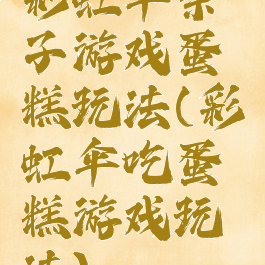 彩虹伞亲
子游戏蛋
糕玩法(彩
虹伞吃蛋
糕游戏玩
法)